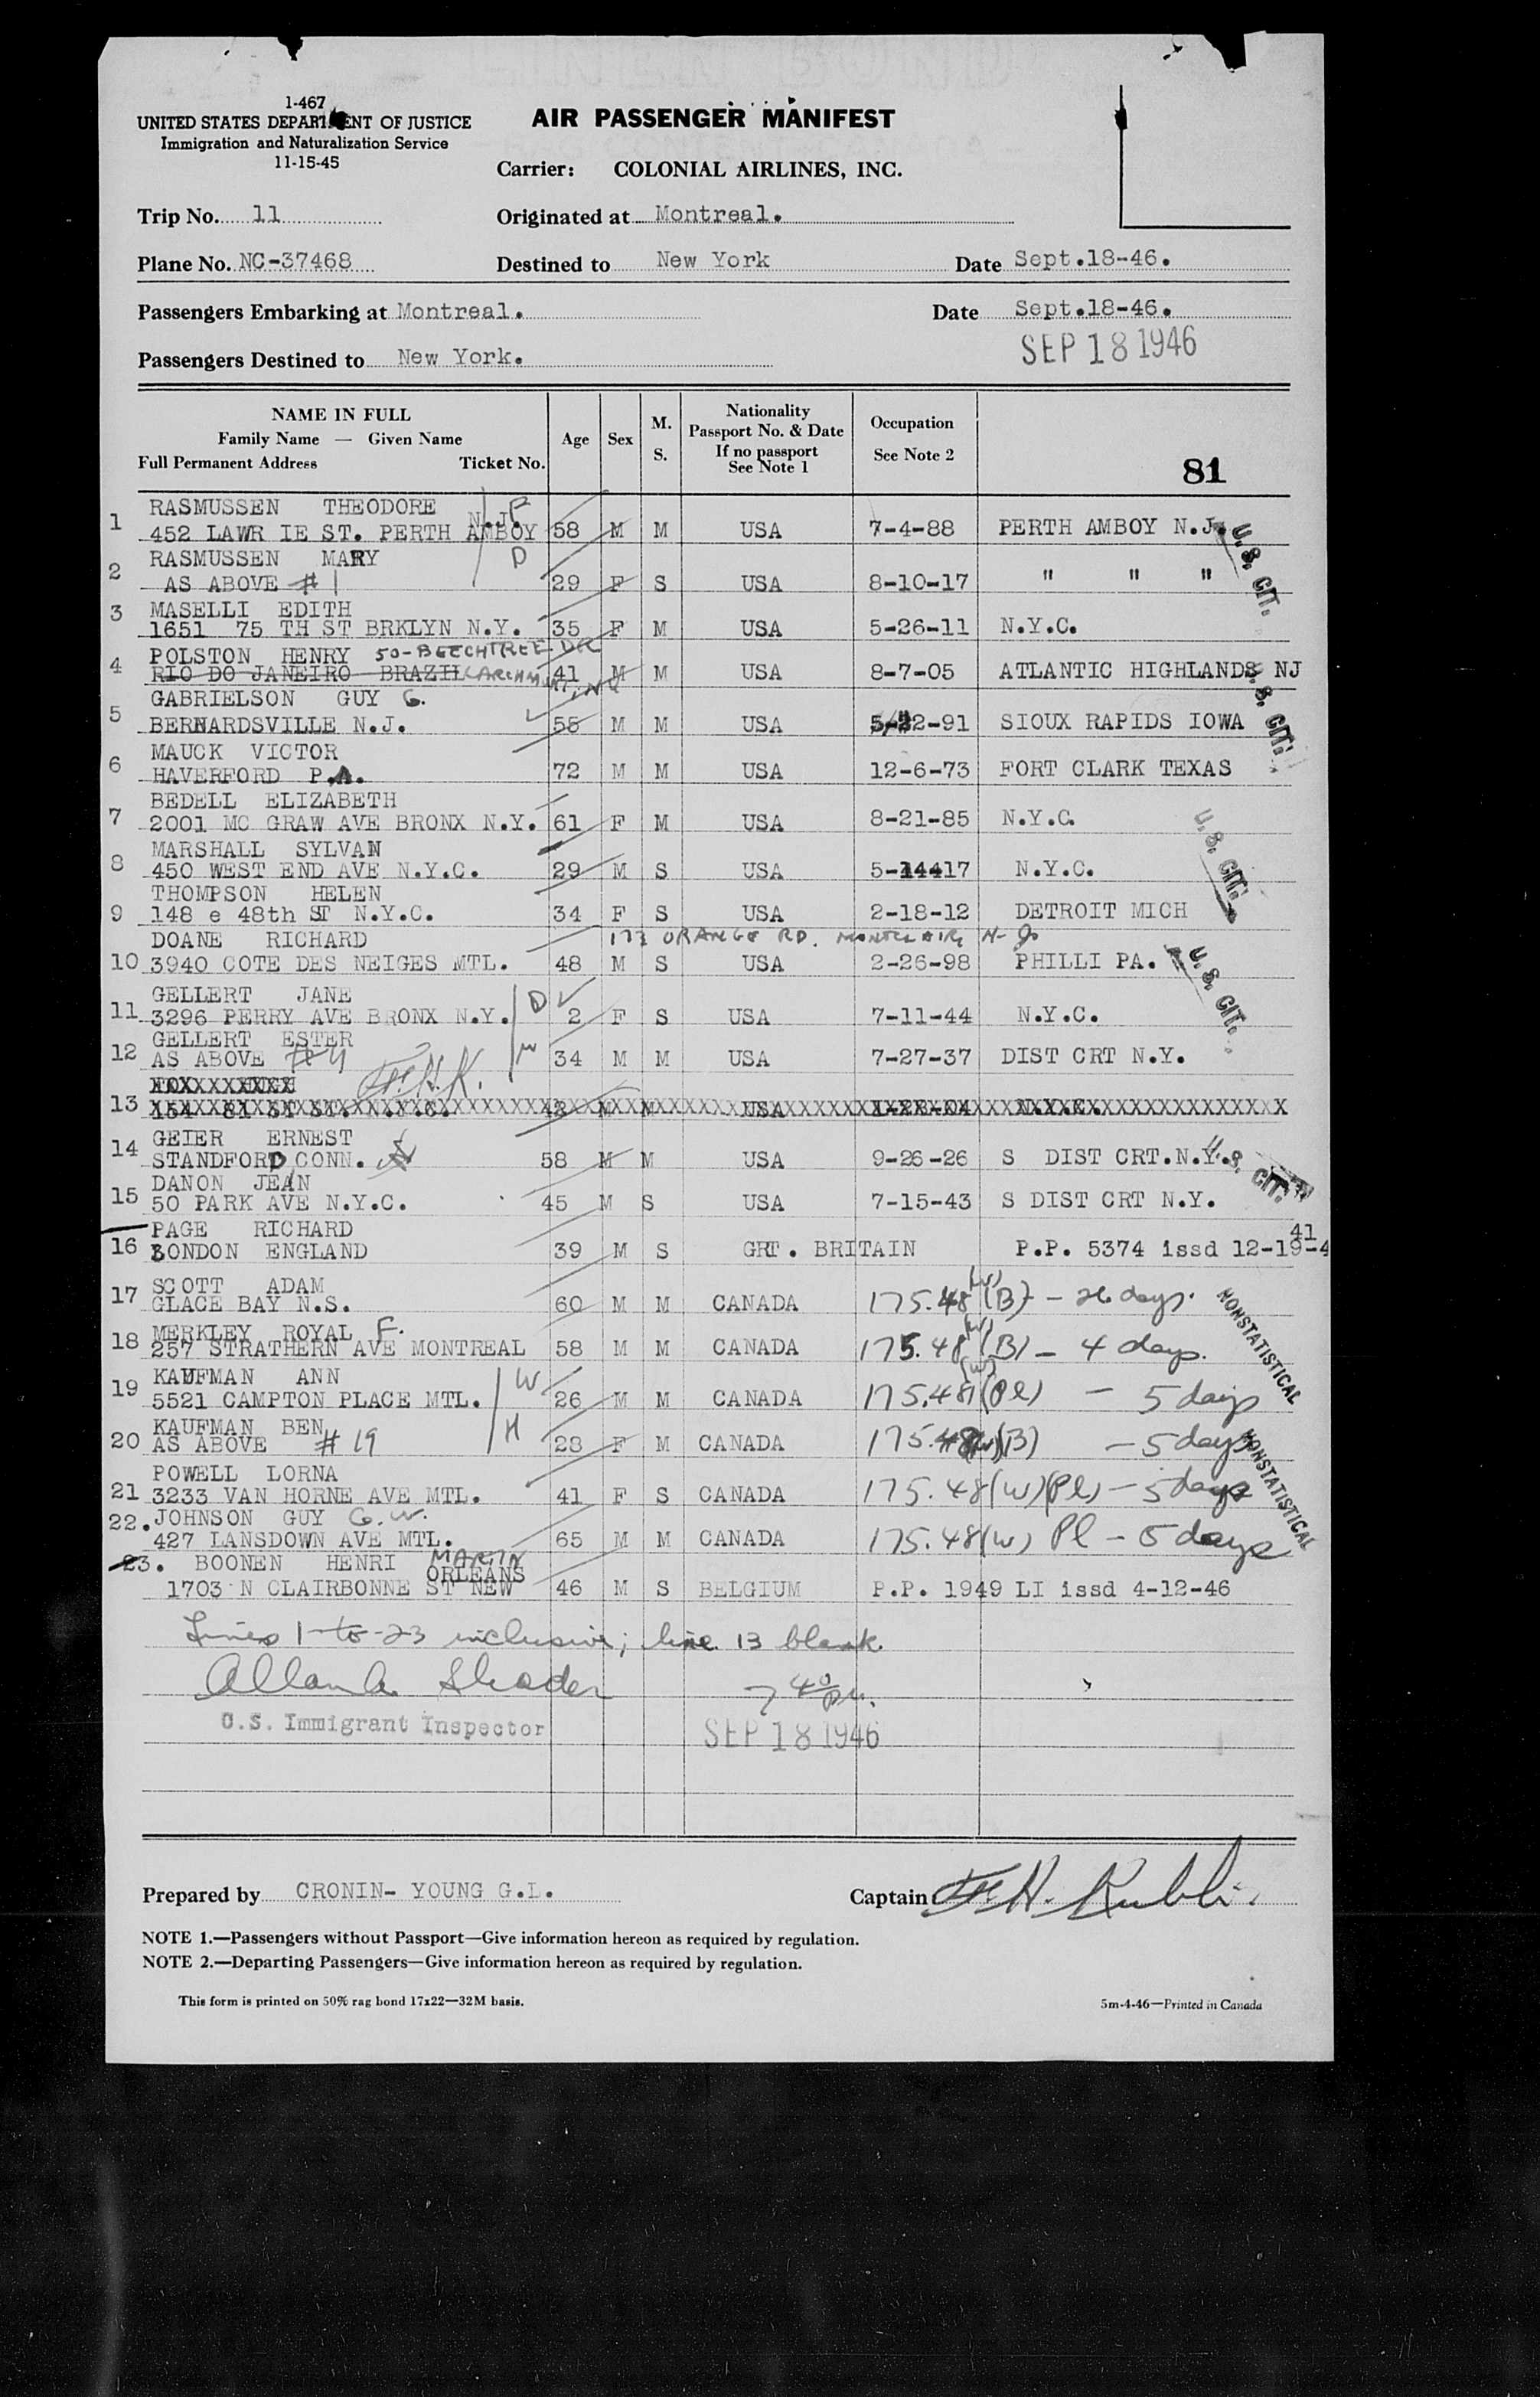 1-467
UNITED STATES DEPARTMENT OF JUSTICE
Immigration and Naturalization Service
11-15-45
AIR PASSENGER MANIFEST
Carrier: COLONIAL AIRLINES, INC.
Trip No. 11
Originated at Montreal.
Plane No. NC-37468
Destined to New York
Date Sept.18-46.
Passengers Embarking at Montreal.
Date Sept.18-46.
SEP 18 1946
Passengers Destined to New York.
NAME IN FULL
Family Name — Given Name
Full Permanent Address Ticket No.
Age
Sex
M.
S.
Nationality
Passport No. & Date
If no passport
See Note 1
Occupation
See Note 2
81
RASMUSSEN THEODORE N.J. F
1 452 LAWR IE ST. PERTH AMBOY 58 M M USA 7-4-88 PERTH AMBOY N.J.
RASMUSSEN MARY D
2 AS ABOVE # 1 29 F S USA 8-10-17 " " "
U.S. CIT.
MASELLI EDITH
3 1651 75 TH ST BRKLYN N.Y. 35 F M USA 5-26-11 N.Y.C.
POLSTON HENRY 50-BEECHTREE DR
4 RIO DO JANEIRO BRAZIL 41 M M USA 8-7-05 ATLANTIC HIGHLANDS NJ
GABRIELSON GUY G.
5 BERNARDSVILLE N.J. 55 M M USA 22-91 SIOUX RAPIDS IOWA
U.S. CIT.
MAUCK VICTOR
6 HAVERFORD P.A. 72 M M USA 12-6-73 FORT CLARK TEXAS
BEDELL ELIZABETH
7 2001 MC GRAW AVE BRONX N.Y. 61 F M USA 8-21-85 N.Y.C.
MARSHALL SYLVAN
8 450 WEST END AVE N.Y.C. 29 M S USA 5-14417 N.Y.C.
U.S. CIT.
THOMPSON HELEN
9 148 e 48th ST N.Y.C. 34 F S USA 2-18-12 DETROIT MICH
DOANE RICHARD 173 ORANGE RD. MONTCLAIR N-J.
10 3940 COTE DES NEIGES MTL. 48 M S USA 2-26-98 PHILLI PA.
U.S. CIT.
GELLERT JANE D
11 3296 PERRY AVE BRONX N.Y. 2 F S USA 7-11-44 N.Y.C.
GELLERT ESTER
12 AS ABOVE 34 M M USA 7-27-37 DIST CRT N.Y.
F.H.K.
13 154 81 ST ST. N.Y.C. M M USA N.Y.C.
GEIER ERNEST
14 STANDFORD CONN. 58 M M USA 9-26-26 S DIST CRT.N.Y.
U.S. CIT.
DANON JEAN
15 50 PARK AVE N.Y.C. 45 M S USA 7-15-43 S DIST CRT N.Y.
PAGE RICHARD 41
16 LONDON ENGLAND 39 M S GRT. BRITAIN P.P. 5374 issd 12-19-4
SCOTT ADAM
17 GLACE BAY N.S. 60 M M CANADA 175.48 (W) (B) - 26 days.
MERKLEY ROYAL F.
18 257 STRATHERN AVE MONTREAL 58 M M CANADA 175.48 (W) (B) - 4 days.
NONSTATISTICAL
KAUFMAN ANN W
19 5521 CAMPTON PLACE MTL. 26 M M CANADA 175.48 (W) (Pl) - 5 days
KAUFMAN BEN H
20 AS ABOVE # 19 28 F M CANADA 175.48(W)(B) - 5 days
POWELL LORNA
21 3233 VAN HORNE AVE MTL. 41 F S CANADA 175.48(W)(Pl) - 5 days
NONSTATISTICAL
22. JOHNSON GUY G.W.
427 LANSDOWN AVE MTL. 65 M M CANADA 175.48(W) Pl - 5 days
23. BOONEN HENRI MARTIN
ORLEANS
1703 N CLAIRBONNE ST NEW 46 M S BELGIUM P.P. 1949 LI issd 4-12-46
Lines 1-to-23 inclusive; line 13 blank.
Allan A. Shader 7 40 pm.
U.S. Immigrant Inspector SEP 18 1946
Prepared by CRONIN- YOUNG G.L.
Captain F.H. Kubli.
NOTE 1.—Passengers without Passport—Give information hereon as required by regulation.
NOTE 2.—Departing Passengers—Give information hereon as required by regulation.
This form is printed on 50% rag bond 17x22—32M basis.
5m-4-46—Printed in Canada